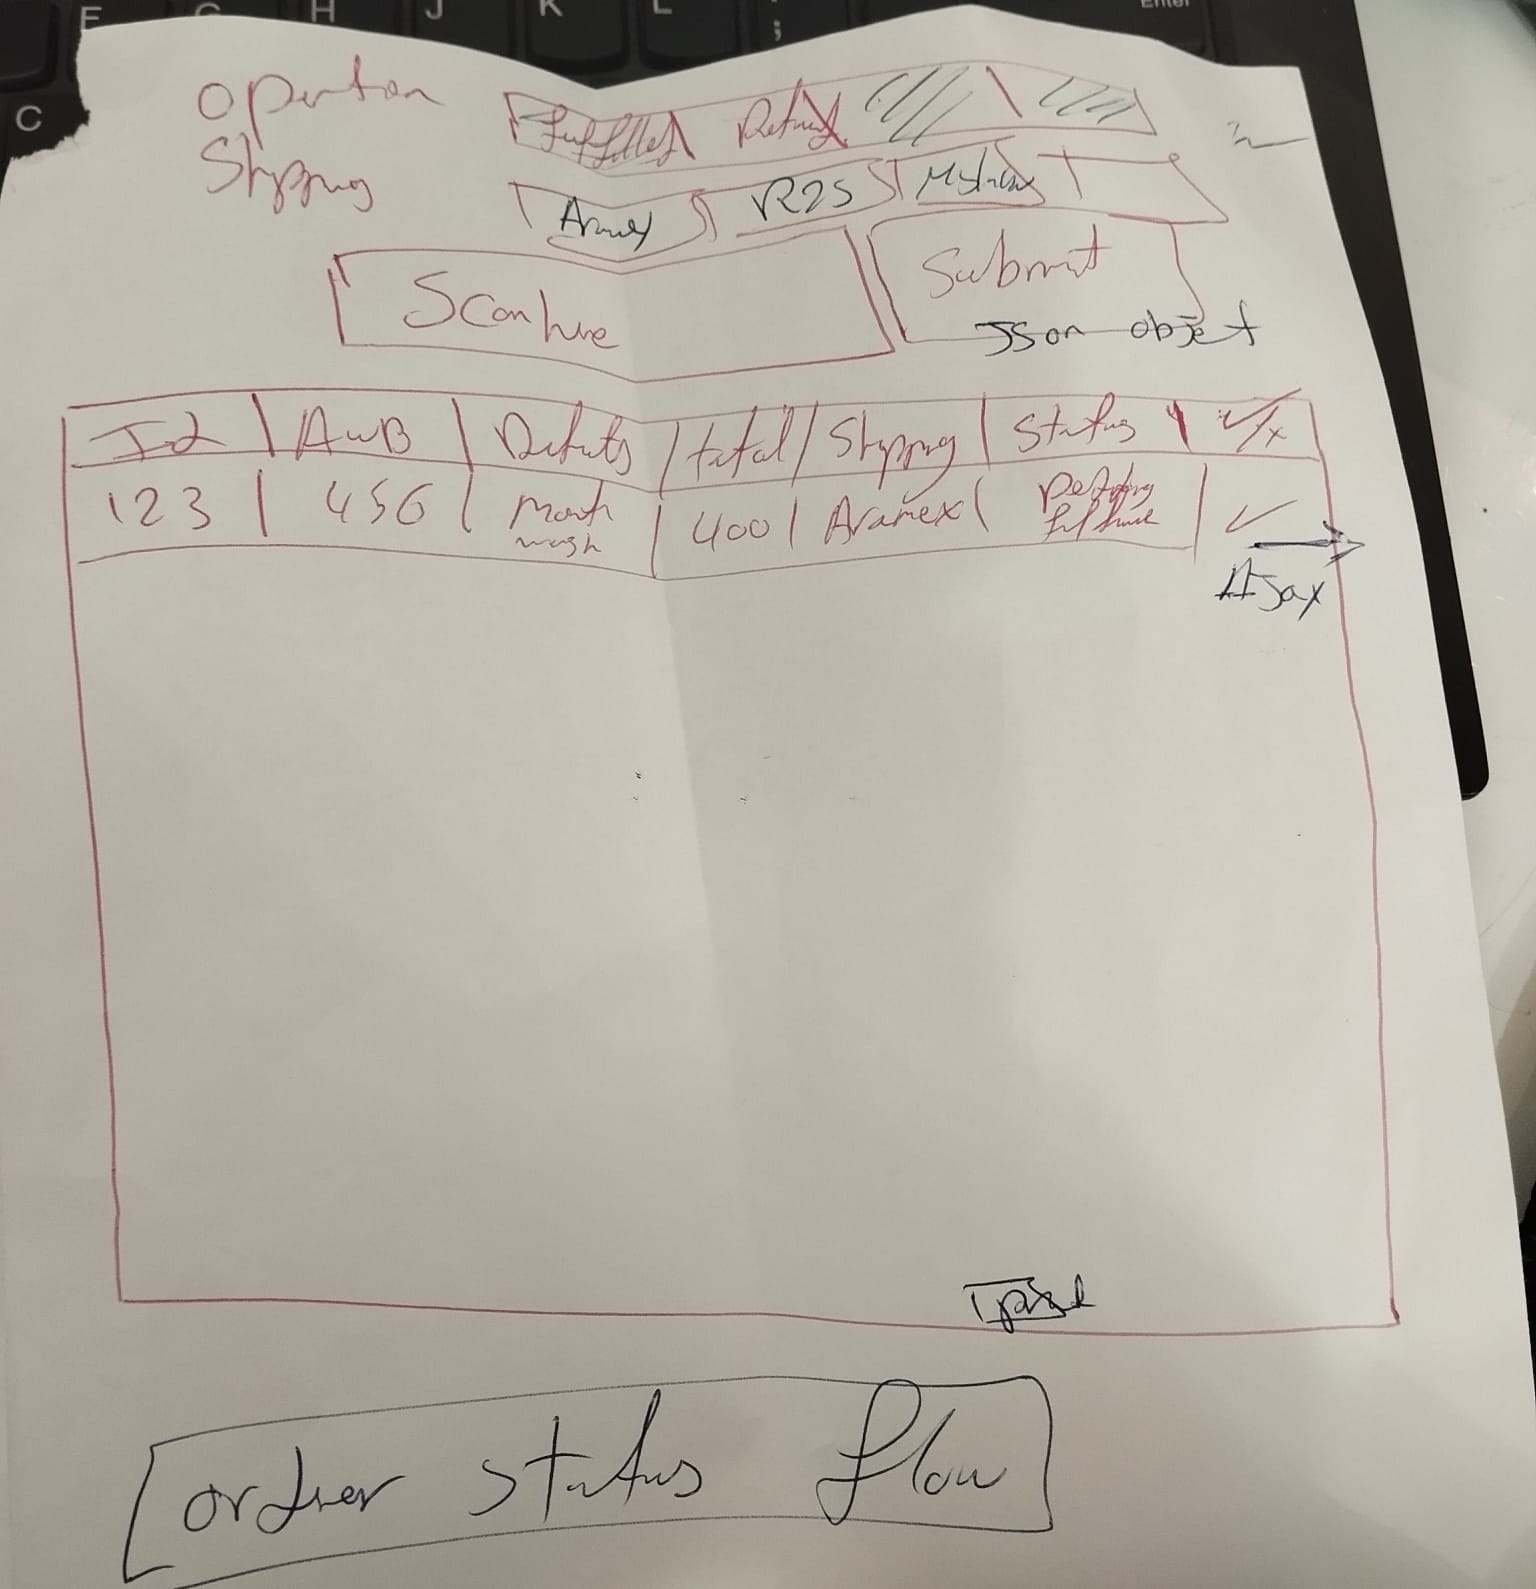 Operation
Fulfilled Return
Shipping
Aramex R2S Mylerz
Scan here Submit
Json object
Id AWB Details total Shipping Status ✓/x
123 456 Mouth wash 400 Aramex Pending fulfilment ✓
Ajax
order status flow